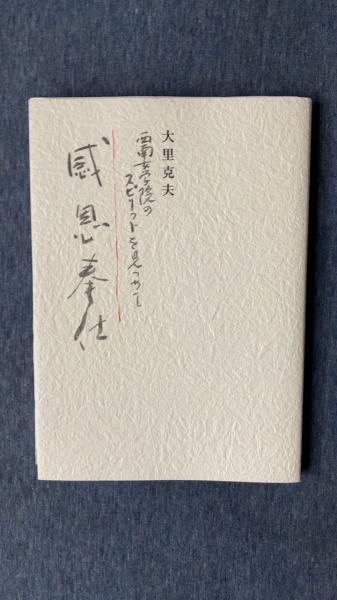 大里克夫
西南女学院の
スピリットを見つめて
感恩奉仕